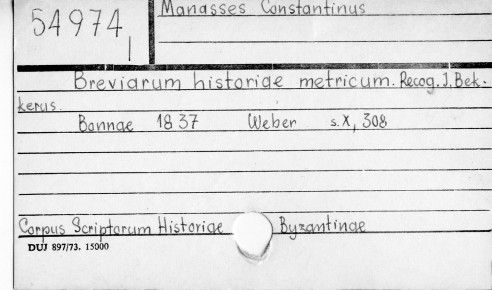 54974
Manasses Constantinus
Breviarum historiae metricum. Recog. J. Bek-
kerus.
Bonnae 1837 Weber s. X, 308
Corpus Scriptorum Historiae Byzantinae
DUJ 897/73. 15000